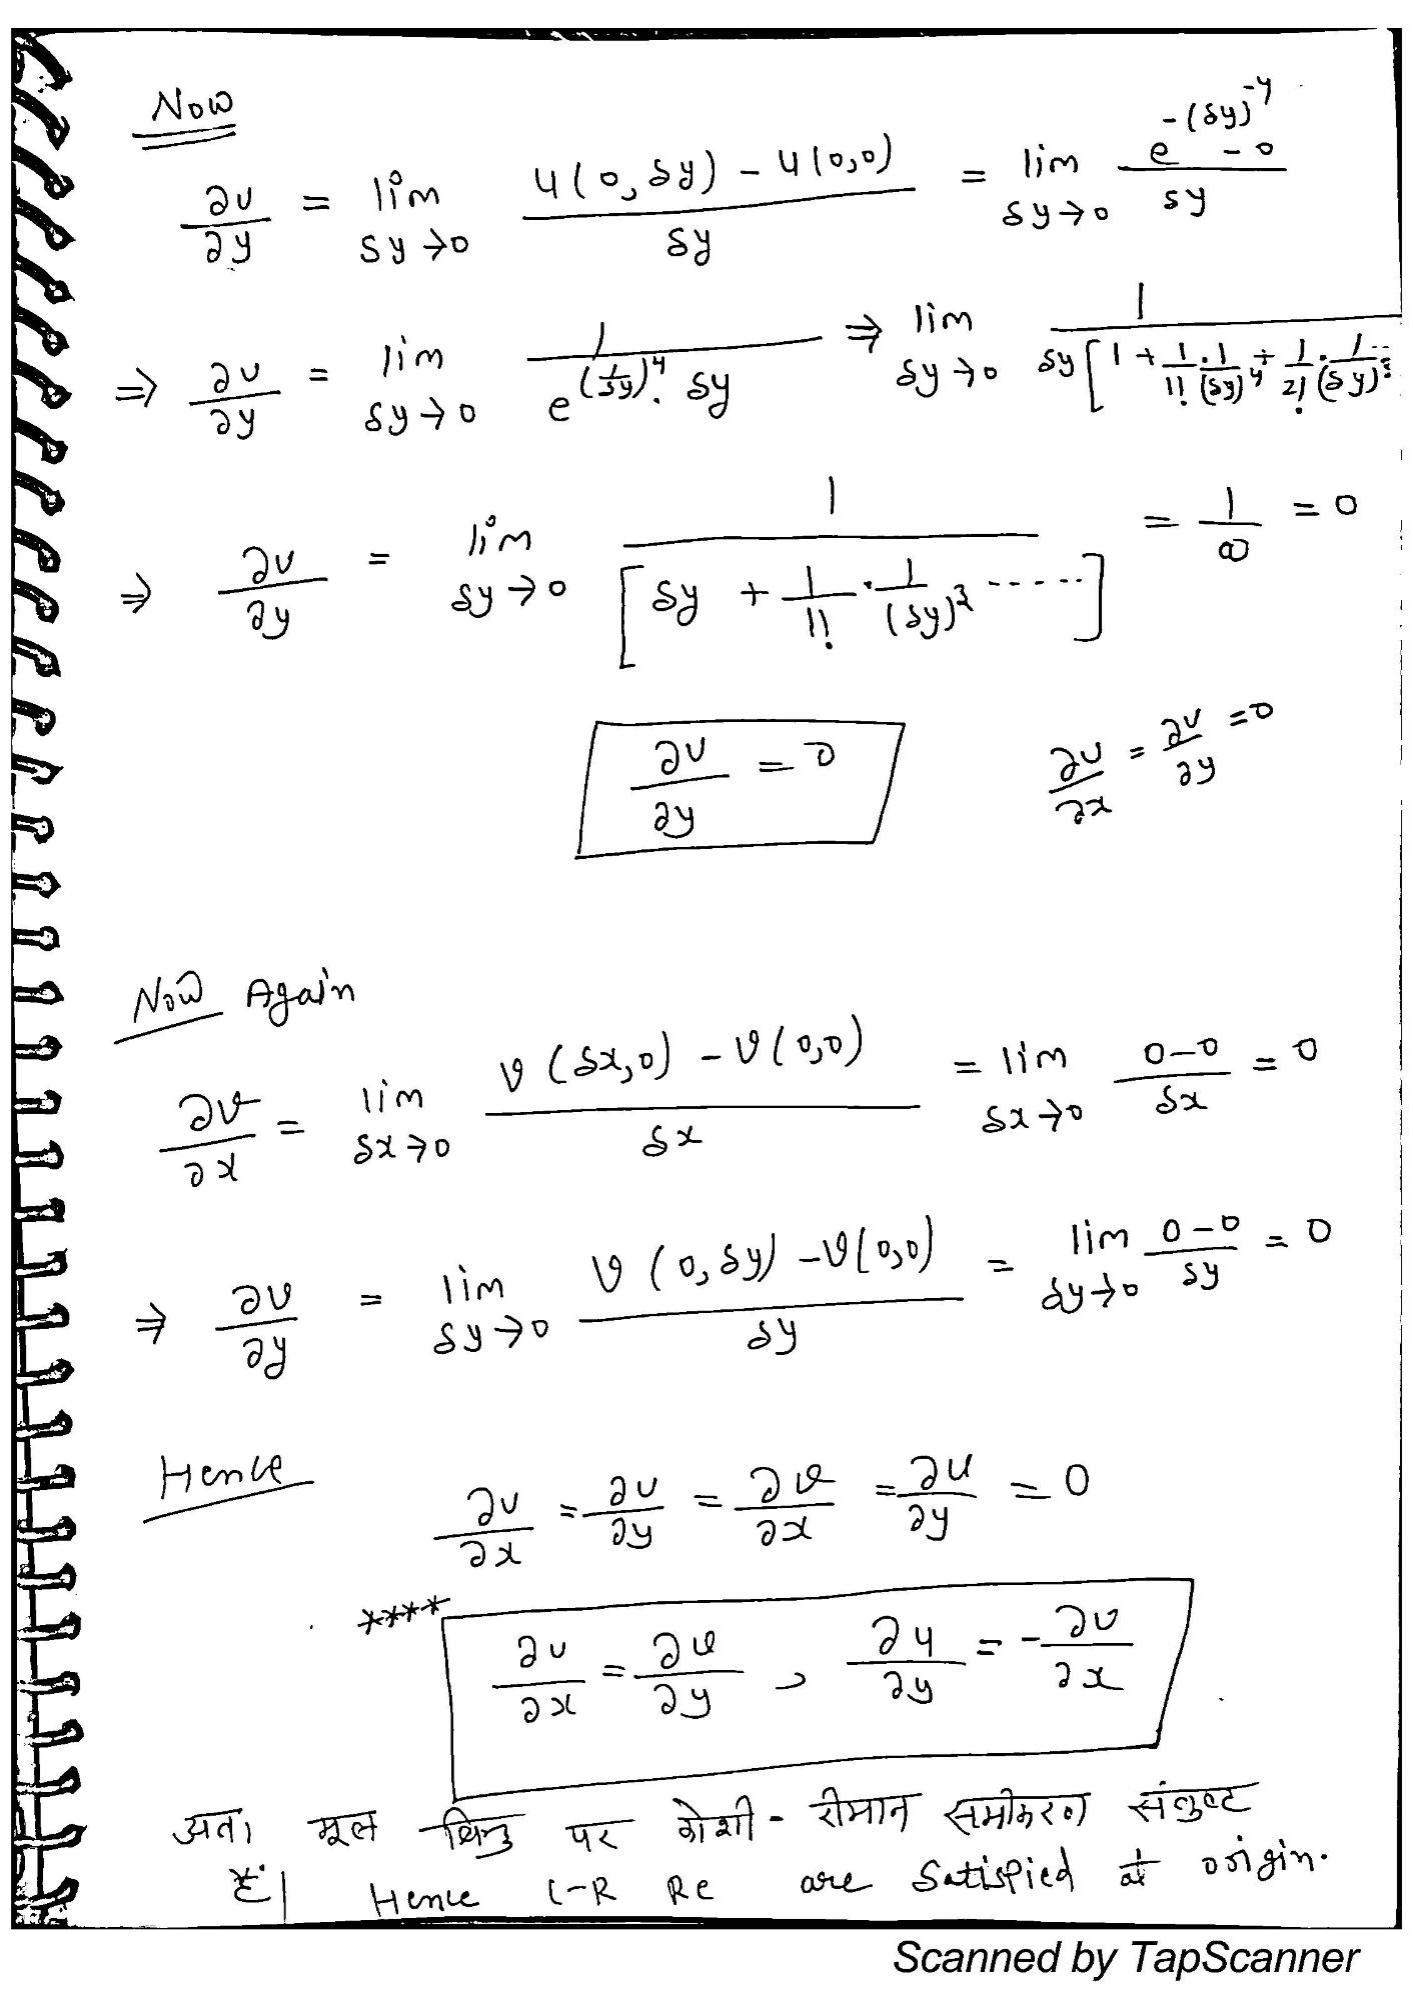 Now
∂u/∂y = lim δy→0 (u(0, δy) - u(0,0))/δy = lim δy→0 (e^(-(δy)^-4) - 0)/δy
⇒ ∂u/∂y = lim δy→0 1/(e^((1/δy)^4) . δy) ⇒ lim δy→0 1/(δy[1 + 1/1! . 1/(δy)^4 + 1/2! . 1/(δy)^8 ...
⇒ ∂u/∂y = lim δy→0 1/[δy + 1/1! . 1/(δy)^3 ......] = 1/∞ = 0
∂u/∂y = 0
∂u/∂x = ∂u/∂y = 0
Now Again
∂v/∂x = lim δx→0 (v(δx,0) - v(0,0))/δx = lim δx→0 (0-0)/δx = 0
⇒ ∂v/∂y = lim δy→0 (v(0, δy) - v(0,0))/δy = lim δy→0 (0-0)/δy = 0
Hence
∂u/∂x = ∂u/∂y = ∂v/∂x = ∂u/∂y = 0
****
∂u/∂x = ∂v/∂y , ∂u/∂y = -∂v/∂x
अतः मूल बिन्दु पर कोशी - रीमान समीकरण संतुष्ट
हैं| Hence C-R Re are Satisfied at origin.
Scanned by TapScanner